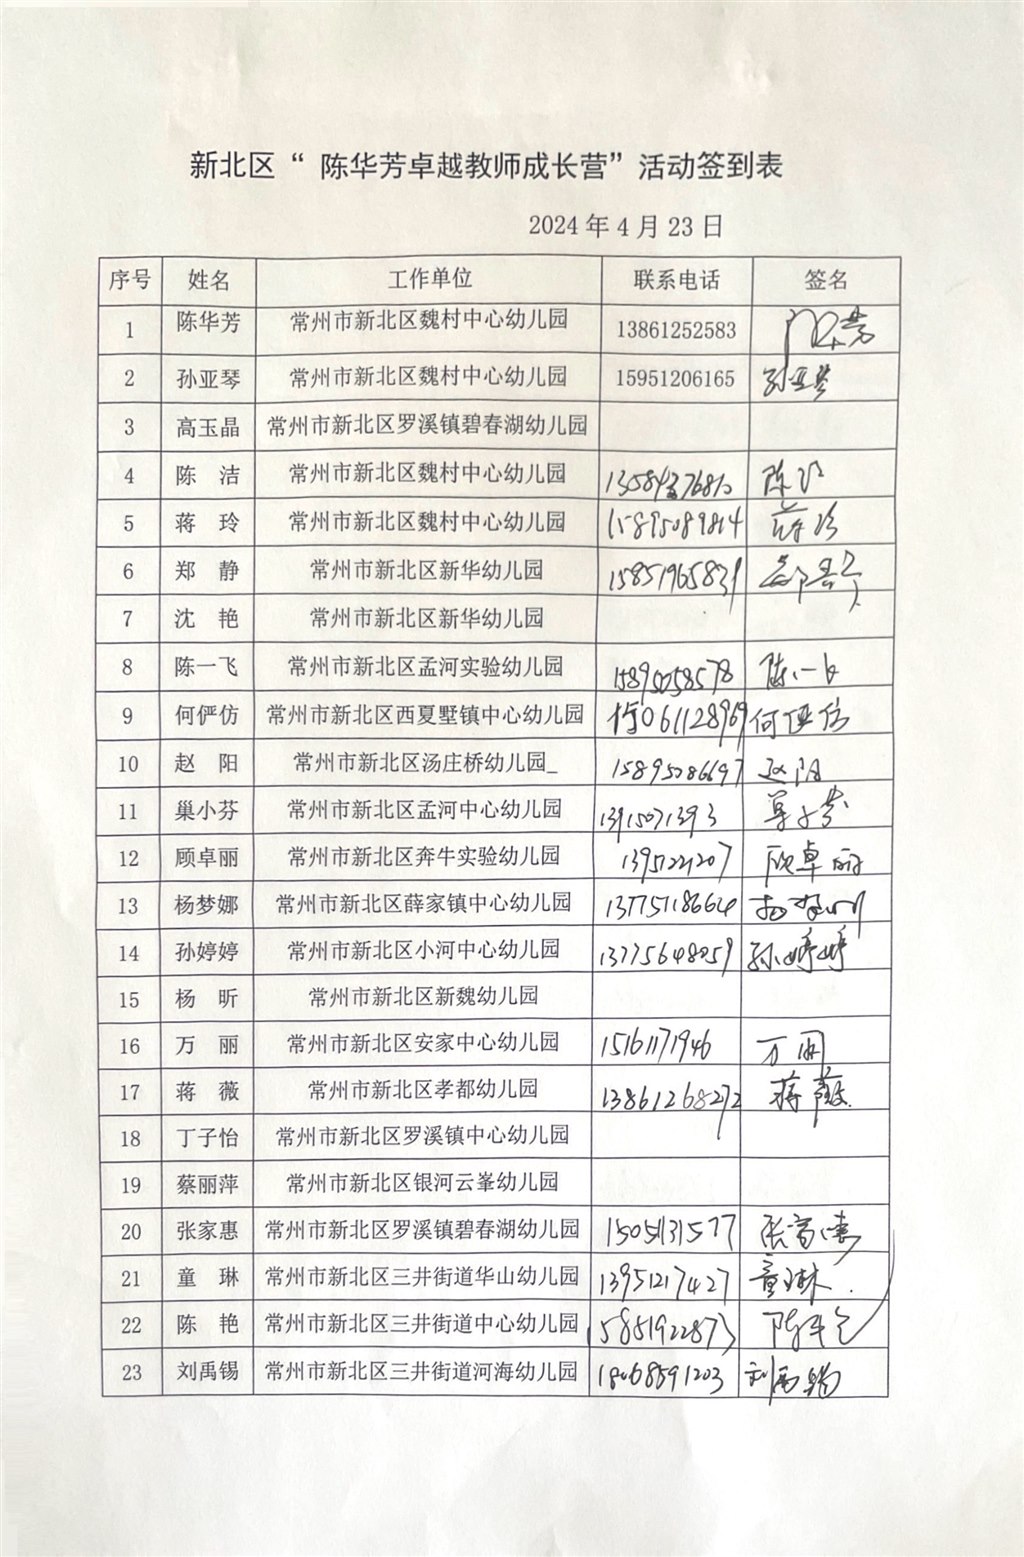 新北区“ 陈华芳卓越教师成长营”活动签到表
2024 年 4 月 23 日
序号 姓名 工作单位 联系电话 签名
1 陈华芳 常州市新北区魏村中心幼儿园 13861252583
2 孙亚琴 常州市新北区魏村中心幼儿园 15951206165 孙亚琴
3 高玉晶 常州市新北区罗溪镇碧春湖幼儿园
4 陈 洁 常州市新北区魏村中心幼儿园 陈洁
5 蒋 玲 常州市新北区魏村中心幼儿园 15895089814 蒋玲
6 郑 静 常州市新北区新华幼儿园 15851965831 郑静
7 沈 艳 常州市新北区新华幼儿园
8 陈一飞 常州市新北区孟河实验幼儿园 陈一飞
9 何俨仿 常州市新北区西夏墅镇中心幼儿园 何俨仿
10 赵 阳 常州市新北区汤庄桥幼儿园_ 15895086697 赵阳
11 巢小芬 常州市新北区孟河中心幼儿园 13915071393 巢小芬
12 顾卓丽 常州市新北区奔牛实验幼儿园 顾卓丽
13 杨梦娜 常州市新北区薛家镇中心幼儿园 13775118664 杨梦娜
14 孙婷婷 常州市新北区小河中心幼儿园 13775648059 孙婷婷
15 杨 昕 常州市新北区新魏幼儿园
16 万 丽 常州市新北区安家中心幼儿园 15161171946 万丽
17 蒋 薇 常州市新北区孝都幼儿园 13861268272 蒋薇
18 丁子怡 常州市新北区罗溪镇中心幼儿园
19 蔡丽萍 常州市新北区银河云峯幼儿园
20 张家惠 常州市新北区罗溪镇碧春湖幼儿园 15051131577 张家惠
21 童 琳 常州市新北区三井街道华山幼儿园 13951217427 童琳
22 陈 艳 常州市新北区三井街道中心幼儿园 15851922873 陈艳
23 刘禹锡 常州市新北区三井街道河海幼儿园 18068591203 刘禹锡